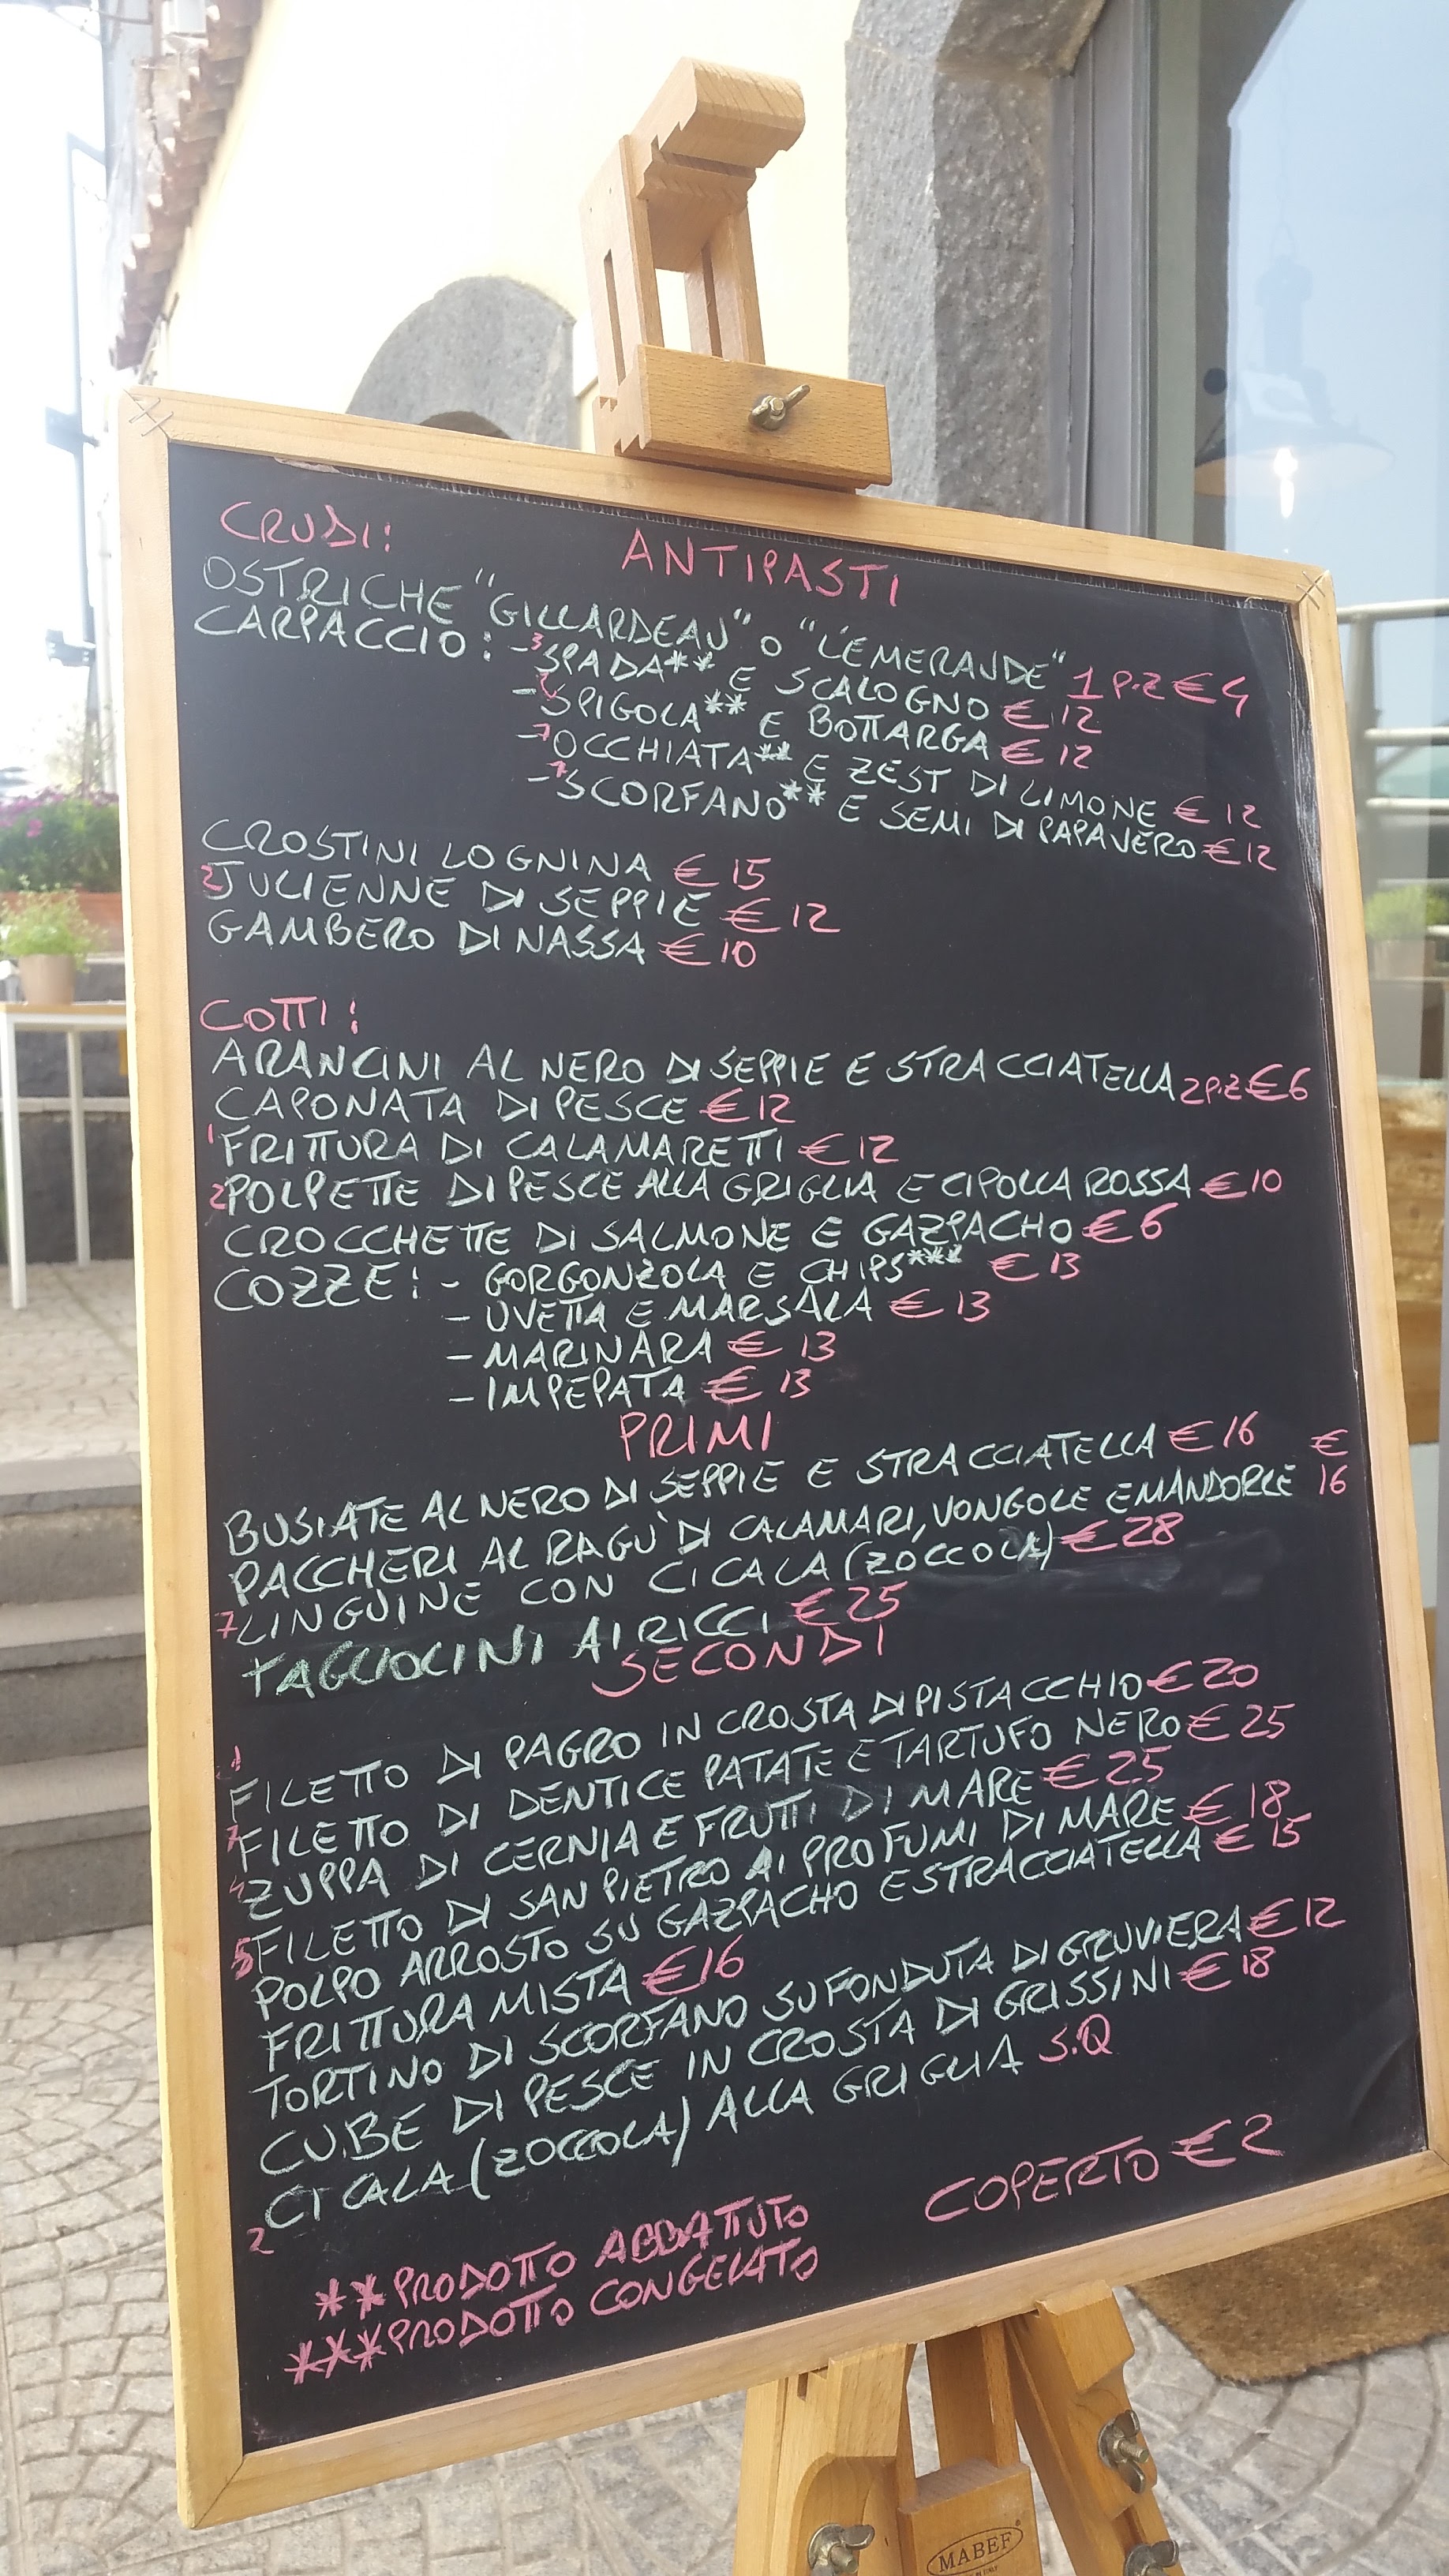 CRUDI:
ANTIPASTI
OSTRICHE "GILLARDEAU" O "L'EMERAUDE" 1 P.Z € 4
CARPACCIO: - SPADA** E SCALOGNO € 12
- SPIGOLA** E BOTTARGA € 12
- 7 OCCHIATA** E ZEST DI LIMONE € 12
- 7 SCORFANO** E SEMI DI PAPAVERO € 12
CROSTINI LOGNINA € 15
2 JULIENNE DI SEPPIE € 12
GAMBERO DI NASSA € 10
COTTI:
ARANCINI AL NERO DI SEPPIE E STRACCIATELLA 2 P.Z € 6
CAPONATA DI PESCE € 12
1 FRITTURA DI CALAMARETTI € 12
2 POLPETTE DI PESCE ALLA GRIGLIA E CIPOLLA ROSSA € 10
CROCCHETTE DI SALMONE E GAZPACHO € 6
COZZE: - GORGONZOLA E CHIPS*** € 13
- UVETTA E MARSALA € 13
- MARINARA € 13
- IMPEPATA € 13
PRIMI
BUSIATE AL NERO DI SEPPIE E STRACCIATELLA € 16
PACCHERI AL RAGU' DI CALAMARI, VONGOLE E MANDORLE € 16
7 LINGUINE CON CICALA (ZOCCOLA) € 28
TAGLIOLINI AI RICCI € 25
SECONDI
1 FILETTO DI PAGRO IN CROSTA DI PISTACCHIO € 20
7 FILETTO DI DENTICE PATATE E TARTUFO NERO € 25
4 ZUPPA DI CERNIA E FRUTTI DI MARE € 25
5 FILETTO DI SAN PIETRO AI PROFUMI DI MARE € 18
POLPO ARROSTO SU GAZPACHO E STRACCIATELLA € 15
FRITTURA MISTA € 16
TORTINO DI SCORFANO SU FONDUTA DI GRUVIERA € 12
CUBE DI PESCE IN CROSTA DI GRISSINI € 18
2 CICALA (ZOCCOLA) ALLA GRIGLIA S.Q
COPERTO € 2
**PRODOTTO ABBATTUTO
***PRODOTTO CONGELATO
MABEF